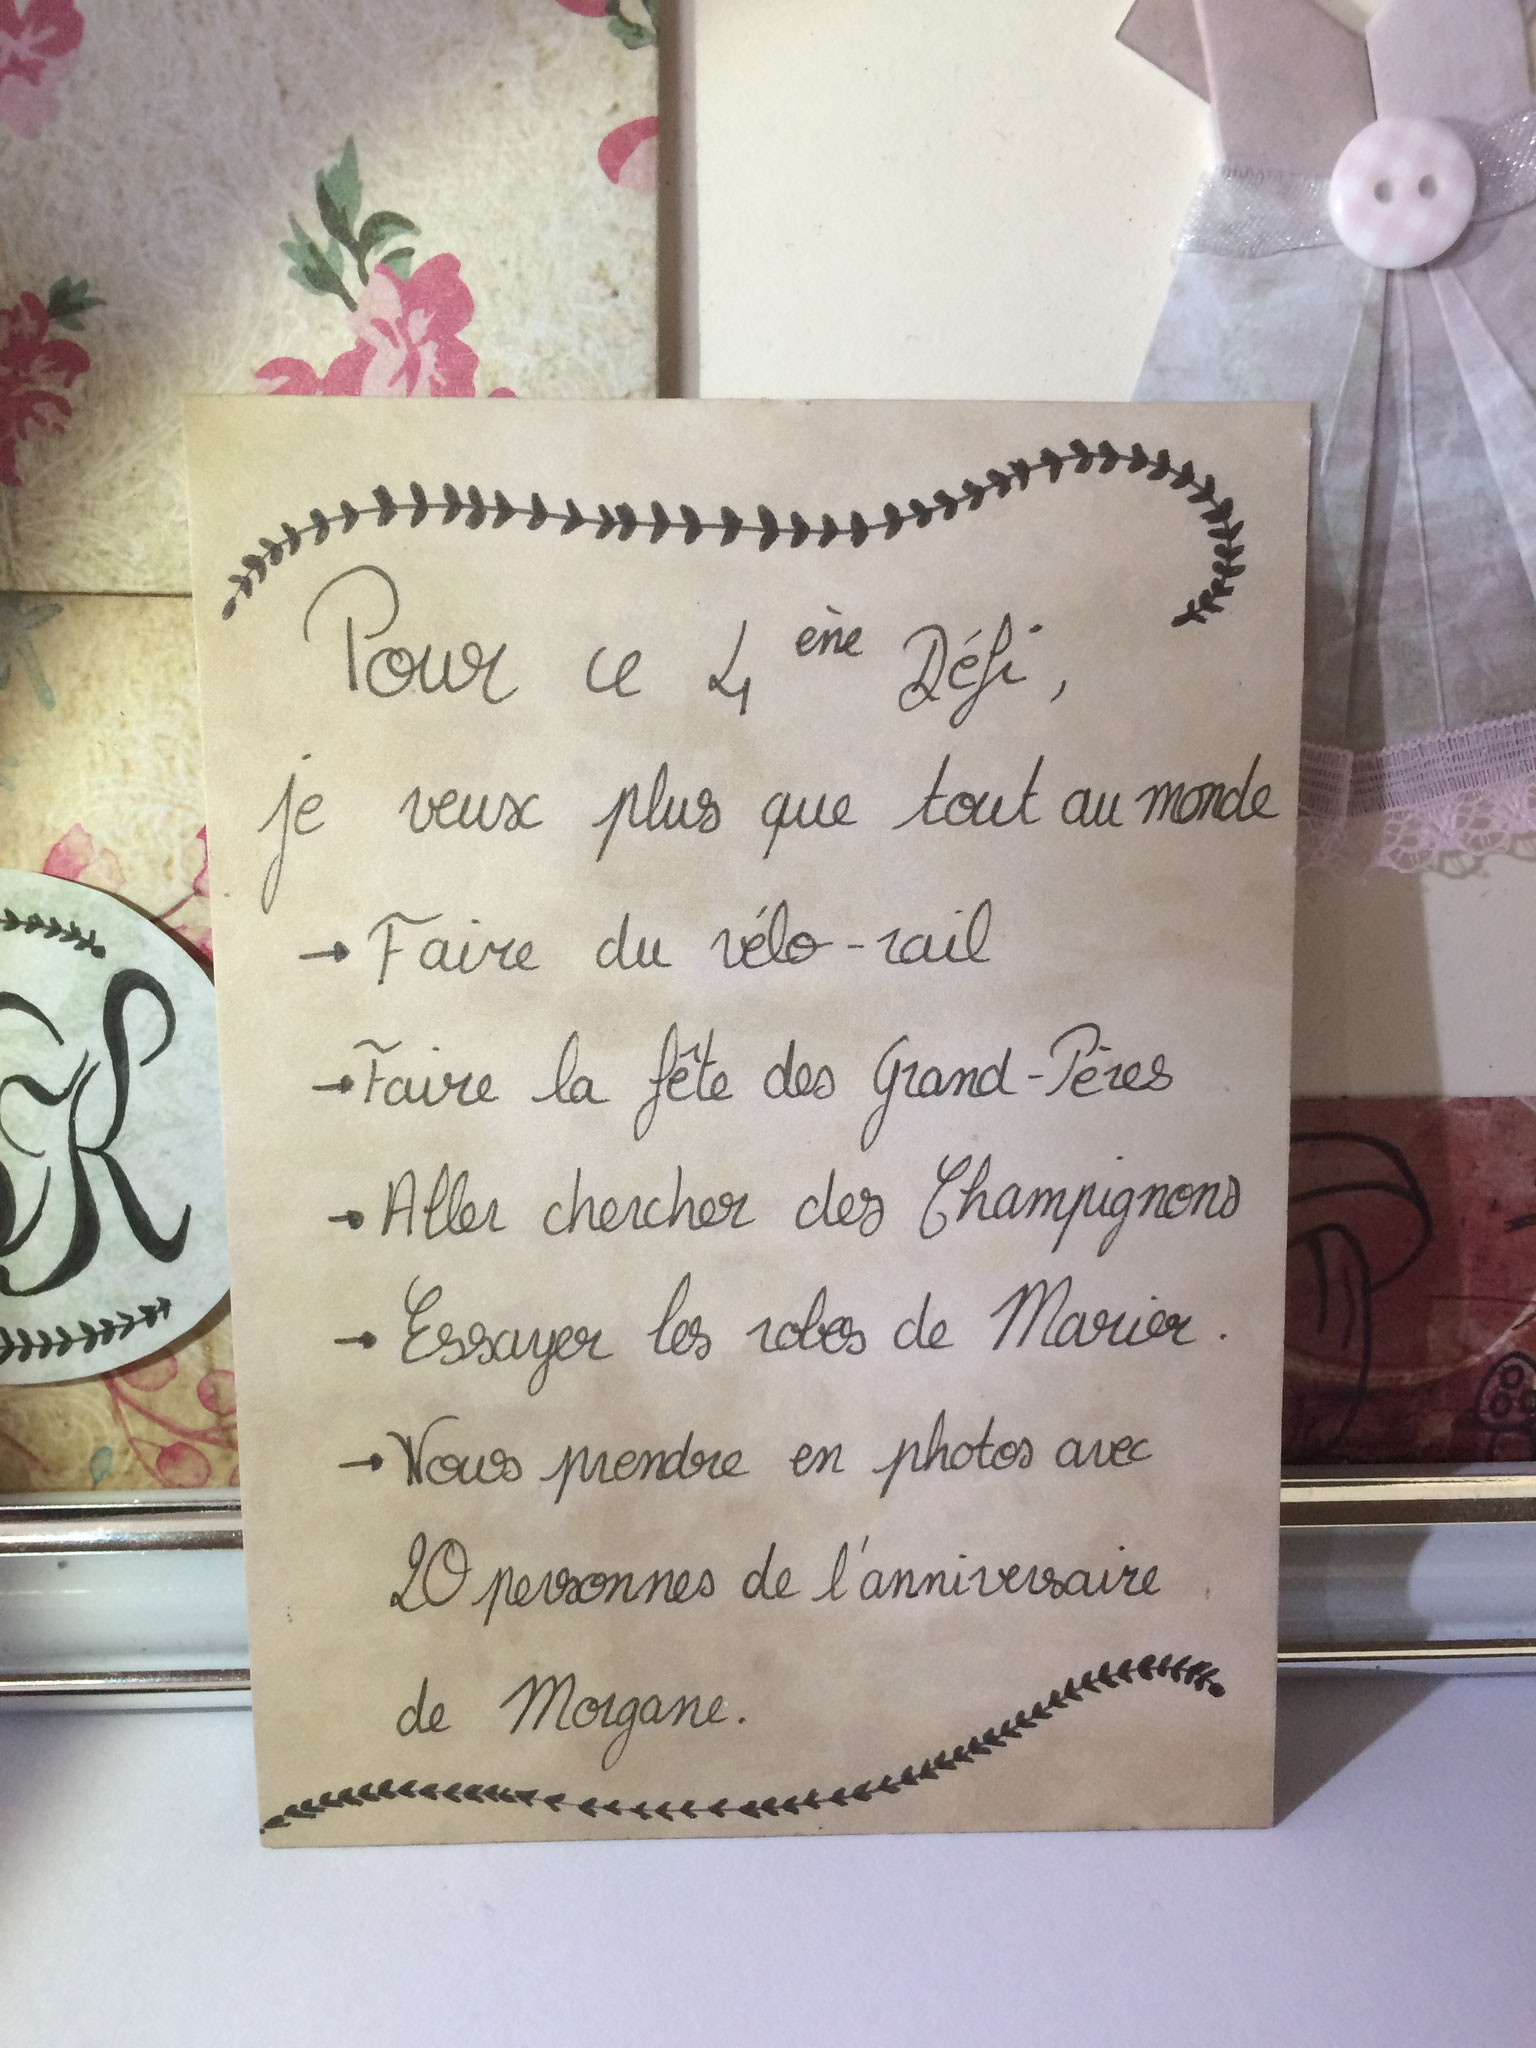 Pour ce 4 ène Défi,
je veux plus que tout au monde
→ Faire du vélo-rail
→ Faire la fête des Grand-Pères
→ Aller chercher des Champignons
→ Essayer les robes de Marier.
→ Nous prendre en photos avec
20 personnes de l'anniversaire
de Morgane.